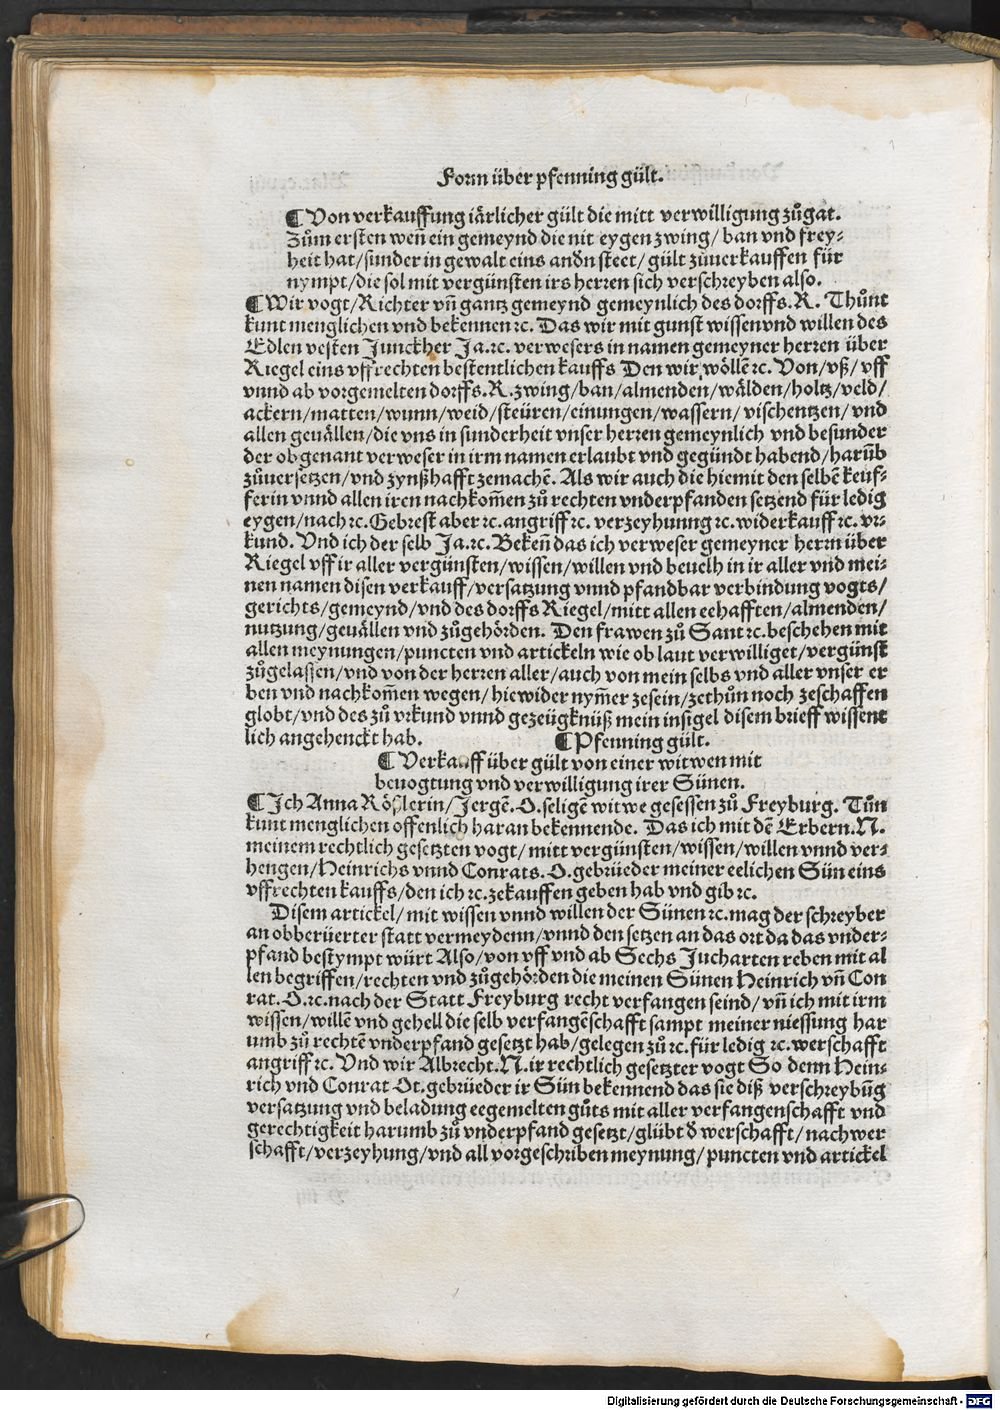 Form über pfenning gült.
¶ Von verkauffung iärlicher gült die mitt verwilligung zůgat.
Zům ersten wen̄ ein gemeynd die nit eygen zwing/ ban vnd frey-
heit hat/sunder in gewalt eins andn̄ steet/ gült zůuerkauffen für
nympt/die sol mit vergünsten irs herren sich verschreyben also.
¶ Wir vogt/Richter vn̄ gantz gemeynd gemeynlich des dorffs. R. Thůnt
kunt menglichen vnd bekennen ⁊c. Das wir mit gunst wissen vnd willen des
Edlen vesten Junckher Ja.⁊c. verwesers in namen gemeyner herren über
Riegel eins vffrechten bestentlichen kauffs Den wir wöllē ⁊c. Von/vß/ vff
vnnd ab vorgemelten dorffs. R. zwing/ban/almenden/wälden/holtz/veld/
ackern/matten/wunn/weid/steüren/einungen/wassern/ vischentzen/ vnd
allen geuällen/die vns in sunderheit vnser herren gemeynlich vnd besunder
der obgenant verweser in irm namen erlaubt vnd gegündt habend/harūb
zůuersetzen/vnd zynßhafft zemachē. Als wir auch die hiemit den selbē keuf-
ferin vnnd allen iren nachkom̄en zů rechten vnderpfanden setzend für ledig
eygen/nach ⁊c. Gebrest aber ⁊c. angriff ⁊c. verzeyhunng ⁊c. widerkauff ⁊c. vr-
kund. Vnd ich der selb Ja.⁊c. Beken̄ das ich verweser gemeyner herrn über
Riegel vff ir aller vergünsten/wissen/willen vnd beuelh in ir aller vnd mei-
nen namen disen verkauff/versatzung vnnd pfandbar verbindung vogts/
gerichts/gemeynd/vnd des dorffs Riegel/mitt allen eehafften/almenden/
nutzung/geuällen vnd zůgehörden. Den frawen zů Sant ⁊c. beschehen mit
allen meynungen/puncten vnd artickeln wie ob laut verwilliget/vergünst
zůgelassen/vnd von der herren aller/auch von mein selbs vnd aller vnser er
ben vnd nachkom̄en wegen/hiewider nym̄er zesein/zethůn noch zeschaffen
globt/vnd des zů vrkund vnnd gezeügknüß mein insigel disem brieff wissent
lich angehenckt hab.                    ¶ Pfenning gült.
¶ Verkauff über gült von einer witwen mit
beuogtung vnd verwilligung irer Sünen.
¶ Jch Anna Rößlerin/Jergē. O. seligē witwe gesessen zů Freyburg. Tůn
kunt menglichen offenlich haran bekennende. Das ich mit dē Erbern. N.
meinem rechtlich gesetzten vogt/ mitt vergünsten/wissen/willen vnnd ver-
hengen/Heinrichs vnnd Conrats. O. gebrüeder meiner eelichen Sün eins
vffrechten kauffs/den ich ⁊c. zekauffen geben hab vnd gib ⁊c.
Disem artickel/ mit wissen vnnd willen der Sünen ⁊c. mag der schreyber
an obberüerter statt vermeydenn/vnnd den setzen an das ort da das vnder-
pfand bestympt würt Also/von vff vnd ab Sechs Jucharten reben mit al
len begriffen/rechten vnd zůgehörden die meinen Sünen Heinrich vn̄ Con
rat. O. ⁊c. nach der Statt Freyburg recht verfangen seind/ vn̄ ich mit irm
wissen/willē vnd gehell die selb verfangēschafft sampt meiner niessung har
umb zů rechtē vnderpfand gesetzt hab/gelegen zů ⁊c. für ledig ⁊c. werschafft
angriff ⁊c. Vnd wir Albrecht. N. ir rechtlich gesetzter vogt So denn Hein-
rich vnd Conrat Ot. gebrüeder ir Sün bekennend das sie diß verschreybūg
versatzung vnd beladung eegemelten gůts mit aller verfangenschafft vnd
gerechtigkeit harumb zů vnderpfand gesetzt/glübt d̕ werschafft/nachwer
schafft/verzeyhung/vnd all vorgeschriben meynung/puncten vnd artickel
Digitalisierung gefördert durch die Deutsche Forschungsgemeinschaft - DFG